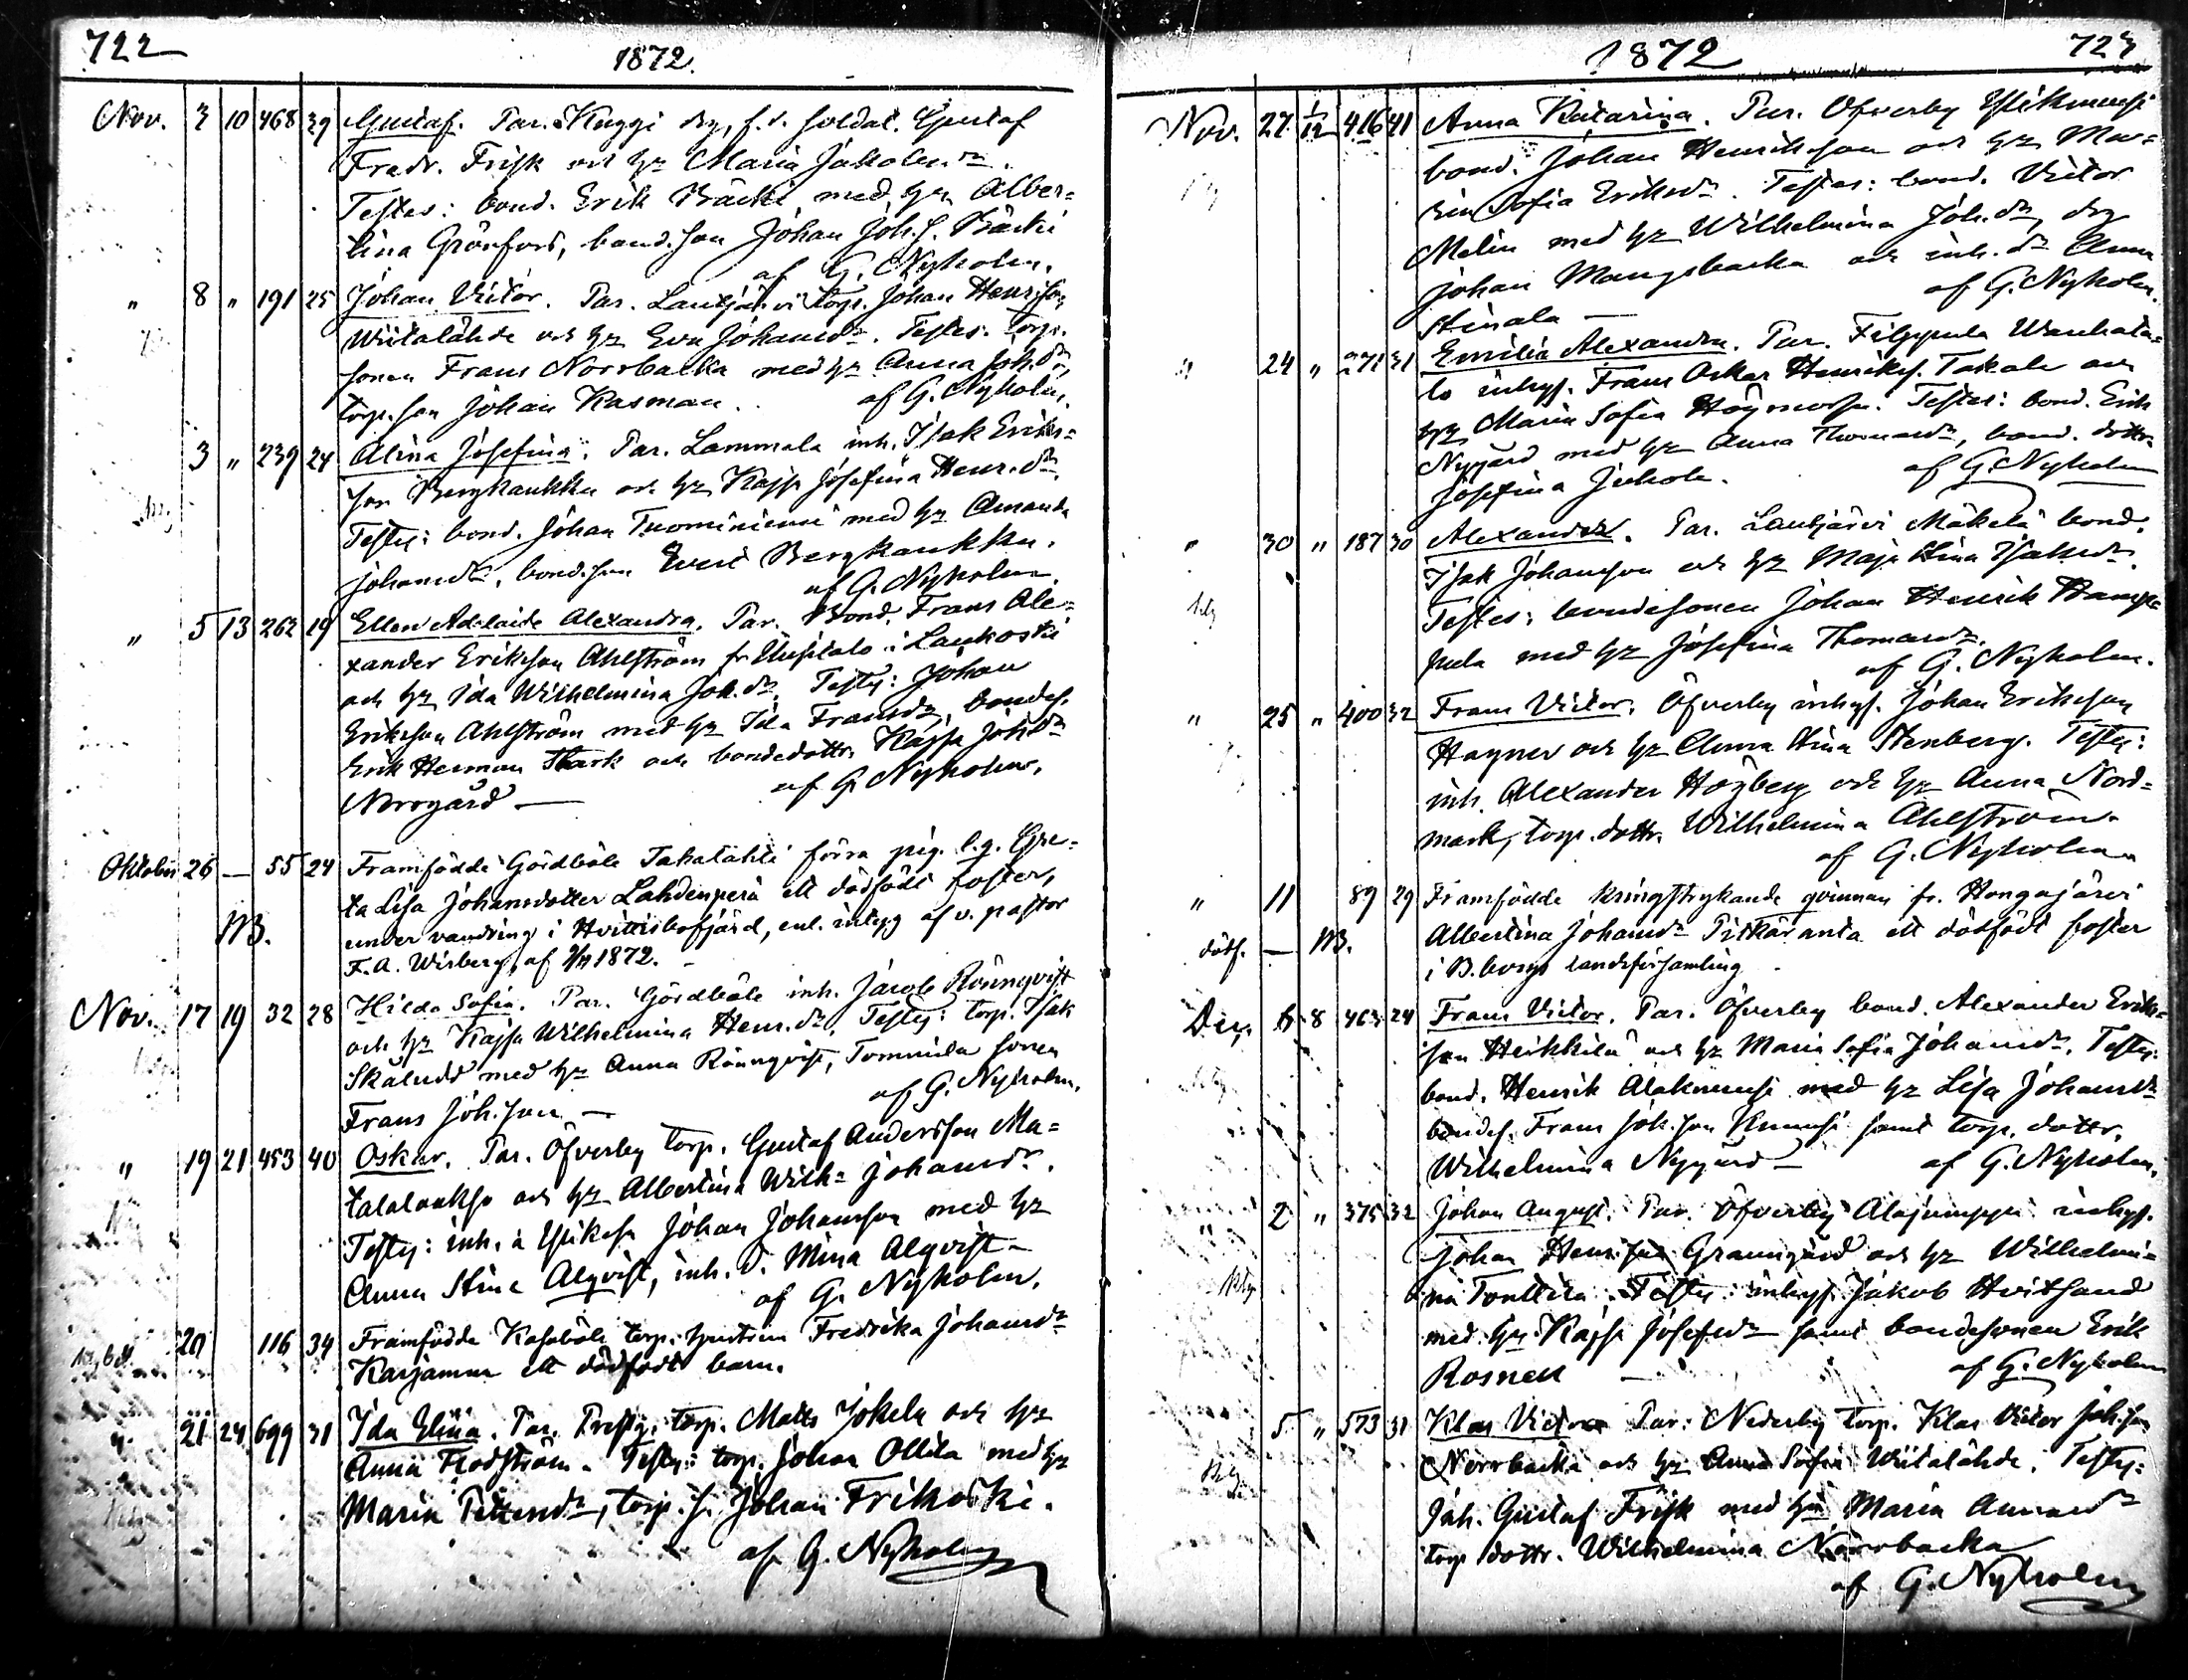 722
1872.
Nov. 3 10 468 39 Gustaf. Par. Kuggi drg, f.d. soldat. Gustaf
Fredr. Frisk och hr Maria Jakobsdr.
Testes: bond. Erik Bäcki med hr Alber=
tina Grönfors, bond.son Johan Joh.s. Bäcki
af G. Nyholm.
" 8 " 191 25 Johan Victor. Par. Lautjärvi torp. Johan Henr.son
Wiitalähde och hr Eva Johansdr. Testes: torp.
sonen Frans Norrbacka med hr Anna Joh.dr,
torp.son Johan Kasman. af G. Nyholm.
3 " 239 24 Alina Josefina. Par. Lammela inh. Isak Eriks=
son Bergkaukka och hr Kajsa Josefina Henr.dr.
Testes: bond. Johan Tuominiemi med hr Amanda
Johansdr, bond.son Evert Bergkaukka.
af G. Nyholm.
" 5 13 262 19 Ellen Adelaide Alexandra. Par. Bond. Frans Ale=
xander Eriksson Ahlström fr. Uusitalo i Lankoski
och hr Ida Wilhelmina Joh.dr. Testes: Johan
Eriksson Ahlström med hr Ida Fransdr, bondes.
Erik Herman Stark och bondedottr. Kajsa Joh.dr
Norrgård — af G. Nyholm.
Oktober 26 — 55 24 Framfödde Gördböle Takalähti förra pig. l.g. Gre=
ta Lisa Johansdotter Lahdenperä ett dödfödt foster,
under vandring i Hvittisbofjärd, enl. intyg af v. pastor
NB.
F. A. Wirberg af 1872.
Nov. 17 19 32 28 Hilda Sofia. Par. Gördböle inh. Jacob Rönnqvist
och hr Kajsa Wilhelmina Henr.dr. Testes: torp. Isak
Skäludd med hr Anna Rönnqvist, Tommila sonen
Frans Joh.son — af G. Nyholm.
" 19 21 453 40 Oskar. Par. Öfverby torp. Gustaf Andersson Ma=
talalaakso och hr Albertina Wilh. Johansdr.
Testes: inh. å Yliksa Johan Johansson med hr
Anna Stina Alqvist, inh. d. Mina Alqvist —
af G. Nyholm.
20 116 34 Framfödde Kasaböle torp. hustrun Fredrika Johansdr
Karjamaa ett dödfödt barn.
21 24 699 31 Ida Elina. Par. torp. Matts Jokela och hr
Anna Flodström. Testes: torp. Johan Ollila med hr
Maria torp. s. Johan Frikoski.
af G. Nyholm
1872
723
Nov. 27 1/12 416 41 Anna Katarina. Par. Öfverby
bond. Johan Henriksson och hr Ma=
ria Sofia Eriksdr. Testes: bond. Victor
Melin med hr Wilhelmina Joh.dr, drg
Johan Mangsbacka och inh.dr Anna
Stinala — af G. Nyholm.
" 24 " 271 31 Emilia Alexandra. Par. Filppula Wanhata=
lo inhys. Frans Oskar Henrikss. Takala och
hr Maria Sofia Testes: bond. Erik
Nygård med hr Anna Thomasdr, bond. dottr.
Josefina Juhola. af G. Nyholm
" 30 " 187 30 Alexander. Par. Lautjärvi Mäkelä bond.
Isak Johansson och hr Maja Stina Isaksdr.
Testes: bondesonen Johan Henrik
med hr Josefina Thomasdr.
af G. Nyholm.
" 25 " 400 32 Frans Victor. Öfverby inhys. Johan Eriksson
Hagner och hr Anna Stina Stenberg. Testes:
inh. Alexander Högberg och hr Anna Nord=
mark, torp. dottr. Wilhelmina Ahlström.
af G. Nyholm.
" 11 89 29 Framfödde kringstrykande qvinnan fr. Hongajärvi
Albertina Johansdr Pitkäranta ett dödfödt foster
dödf. — NB.
i B.borgs landsförsamling.
Dec. 6 8 463 24 Frans Victor. Par. Öfverby bond. Alexander Eriks=
son Heikkilä och hr Maria Sofia Johansdr. Testes:
bond. Henrik Alaknuusi med hr Lisa Johansdr
bondes. Frans Joh.son Knuusi samt torp. dottr.
Wilhelmina Nygård — af G. Nyholm.
" 2 " 375 32 Johan August. Par. Öfverby Alajumppi inhys.
Johan Henr.son Granngård och hr Wilhelmi=
na Tonttila. Testes: inhys. Jakob Hvitsand
med hr Kajsa Josefsdr samt bondesonen Erik
Rosnell — af G. Nyholm
5 " 573 31 Klas Victor Par: Nederby torp. Klas Victor Joh.son
Norrbacka och hr Anna Sofia Wiitalähde. Testes:
Joh. Gustaf Frisk med hr Maria
torp. dottr. Wilhelmina Norrbacka
af G. Nyholm